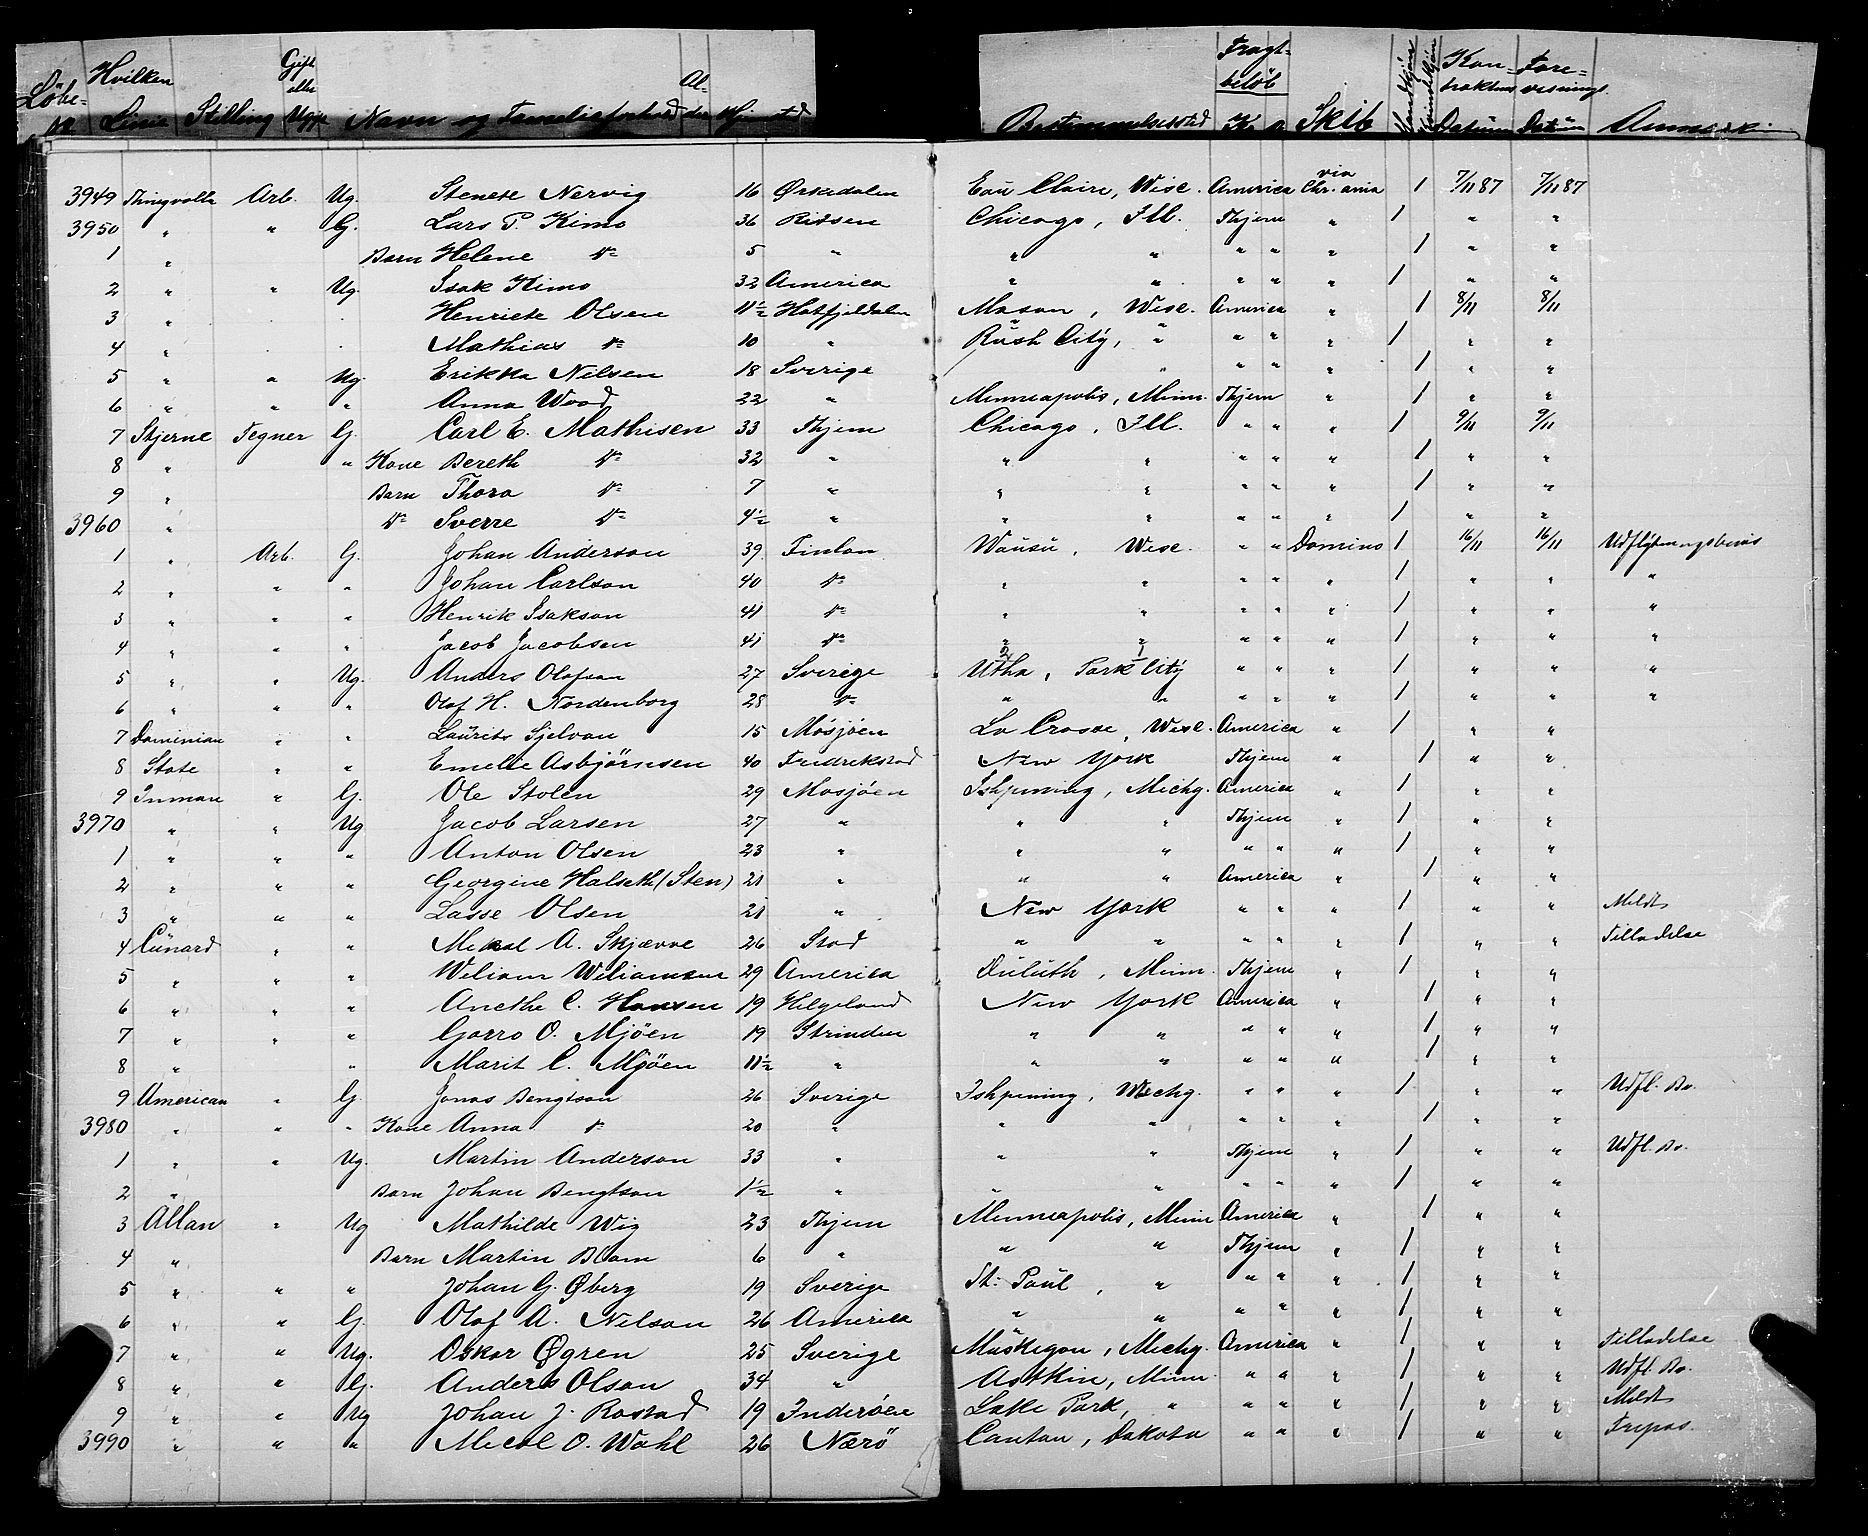 Löbe- № Hvilken Linie Stilling Gift eller Ugift Navn og Familieforhold Al- der Hjemsted Bestemmelsessted Fragt- beløb Kr Ø Skib Mandkjøn Kvindekjøn Kon- traktens Datum Fore- visnings Datum Anmærk.
3949 Thingvalla Arb. Ug. Stenete Nervig 16 Ørkedalen Eau Claire, Wisc. America via Chr.ania 1 7/11 87 7/11 87
3950 " " G. Lars P. Kimo 36 Ritsen Chicago, Ill. Thjem " 1 " "
1 " Barn Helene Do 5 " " " " " " 1 " "
2 " " Ug. Isak Kimo 32 America " " " " " 1 " "
3 " Henriete Olsen 11½ Hatfjeldalen Mason, Wisc. America " 1 8/11 8/11
4 " Mathias Do 10 " Rush City, " " " " 1 " "
5 " " Ug. Erikka Nelsen 18 Sverige " " " " 1 " "
6 " " " Anna Wood 22 " Minneapolis, Minn. Thjem " 1 " "
7 Stjerne Tegner G. Carl E. Mathisen 33 Thjem Chicago, Ill. " " " 1 9/11 9/11
8 " " Kone Bereth Do 32 " " " " " " 1 " "
9 " Barn Thora Do 7 " " " " " " 1 " "
3960 " Do Sverre Do 4½ " " " " " " 1 " "
1 " Arb. G. Johan Anderson 39 Finlan Wausu, Wisc. " " Domino 1 16/11 16/11 Udflytningsbevis
2 " " " Johan Carlson 40 Do " " " " " 1 " " "
3 " " " Henrik Isakson 41 Do " " " " " 1 " " "
4 " " " Jacob Jacobsen 41 Do " " " " " 1 " " "
5 " " Ug. Anders Olafson 27 Sverige Utha, Park City 2 1 " " " 1 " " "
6 " " " Olof H. Nordenborg 28 Do " " " " " 1 " " "
7 Dominian " " Laurits Sjelvan 15 Mosjöen La Crosse, Wisc. America " 1 " "
8 State " " Emelie Asbjörnsen 40 Fredrikstad New York Thjem " 1 " "
9 Inman " G. Ole Stolen 29 Mosjöen Ishpming, Michg. America " 1 " "
3970 " " Ug Jacob Larsen 27 " " " Thjem " 1 " "
1 " " " Anton Olsen 23 " " " " " " 1 " "
2 " " " Georgine Halseth (Sten) 21 " " " America " 1 " "
3 " " " Lasse Olsen 21 " New York " " " 1 " " Meldt
4 Cunard " " Mekal A. Skjævve 26 Stod " " " " " 1 " " Tilladelse
5 " " " Weliam Weliamson 29 America Duluth, Minn. Thjem " 1 " "
6 " " " Anethe C. Hansen 19 Helgeland New York America " 1 " "
7 " " " Gorro O. Mjöen 19 Strinden " " " " " 1 " "
8 " " Marit C. Mjöen 11½ " " " " " " 1 " "
9 American " G. Jonas Bengtson 26 Sverige Ishpeming, Mechg. " " " 1 " " Udfl. Bv.
3980 " " " Kone Anna Do 20 " " " " " " 1 " "
1 " " Ug. Martin Anderson 33 " " " Thjem " 1 " " Udfl. Bv.
2 " Barn Johan Bengtson 1½ " " " " " " 1 " "
3 Allan " Ug Mathilde Wig 23 Thjem Minneapolis, Minn America " 1 " "
4 " Barn Martin Blom 6 " " " Thjem " 1 " "
5 " " " Johan G. Øberg 19 Sverige St. Paul, " " " " 1 " "
6 " " G. Olof A. Nelson 26 America " " " " " 1 " "
7 " " Ug. Oskar Øgren 25 Sverige Muskegon, Michg. America " 1 " " Tilladelse
8 " " G. Anders Olson 34 " Astkin, Minn. " " " 1 " " Udfl. Bv.
9 " " Ug Johan J. Rostad 19 Inderöen Lake Park, " " " " 1 " " Meldt
3990 " " " Mecal O. Wahl 26 Nærö Canton, Dakota " " " 1 " " Frepas.